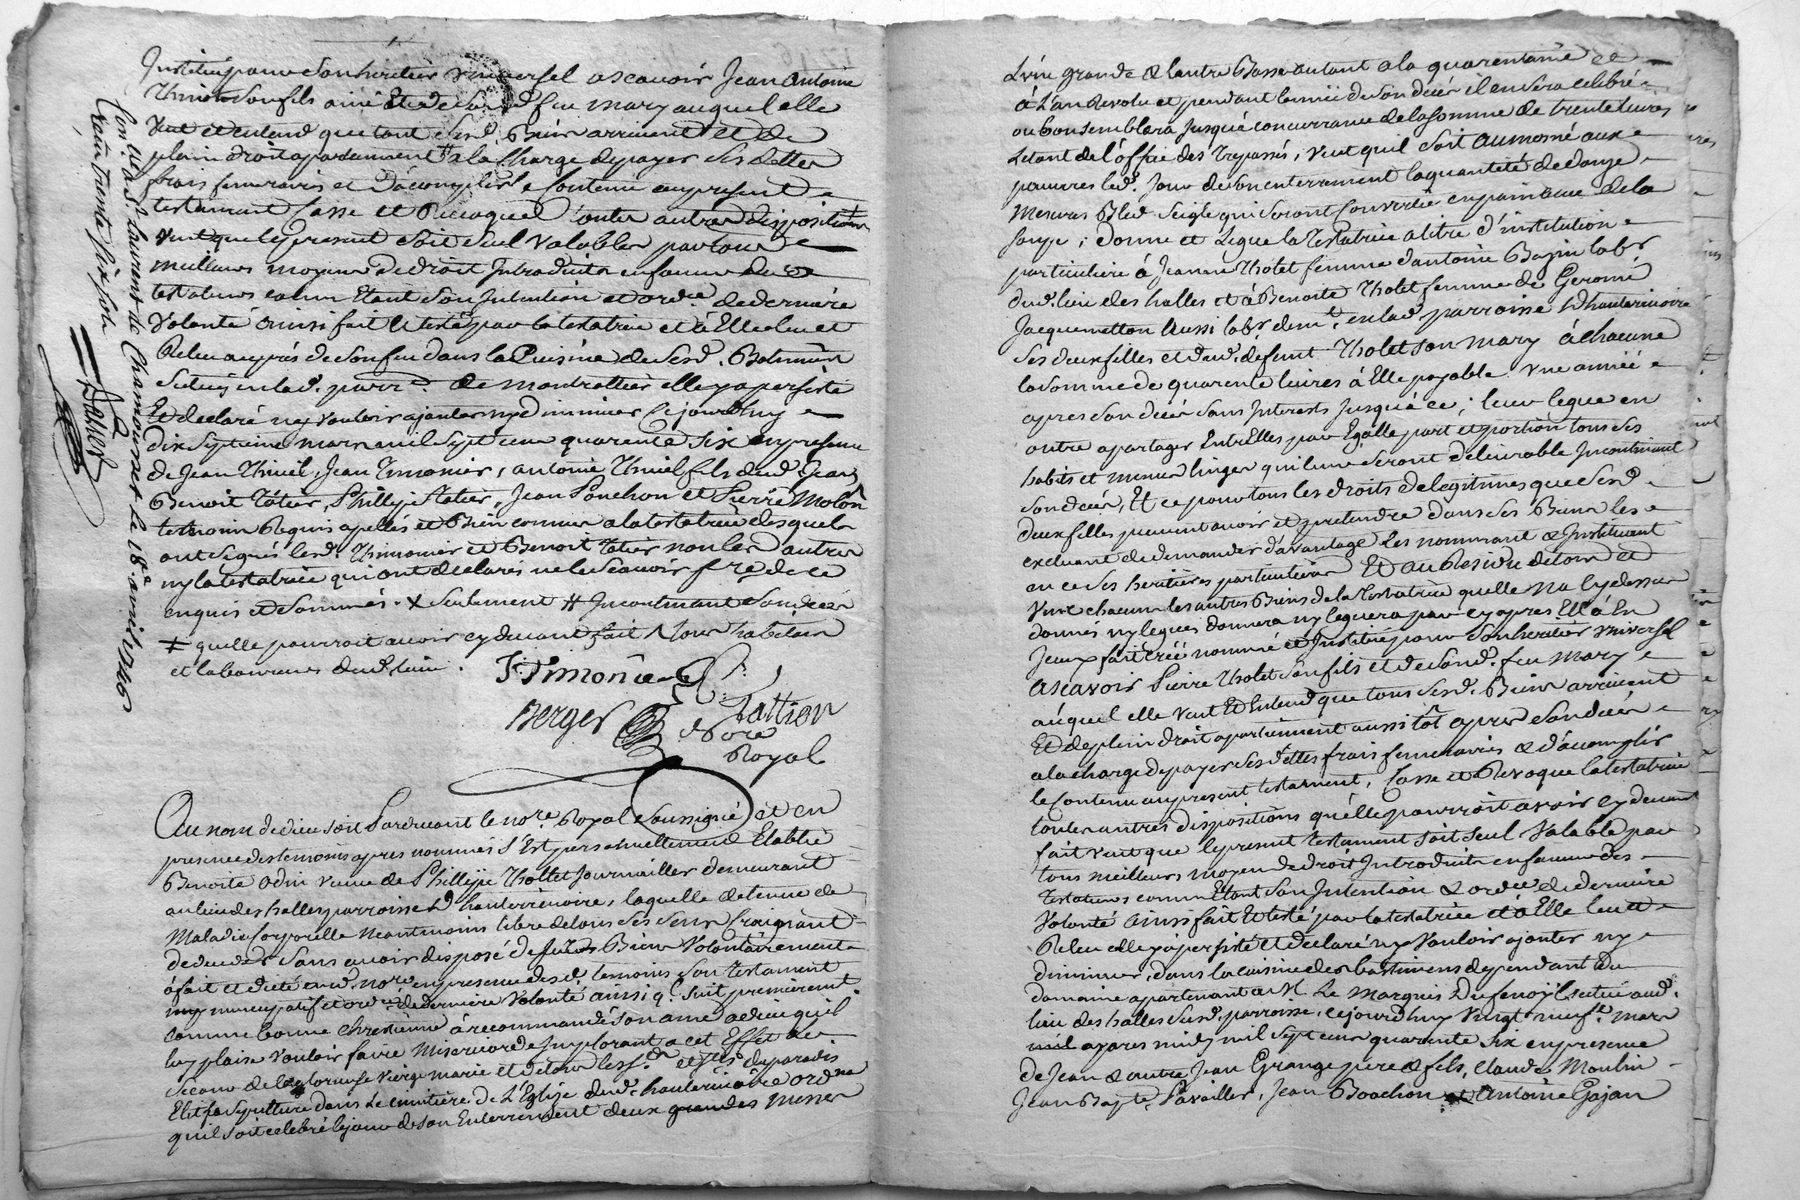 Institué pour son heritier universel ascavoir Jean Antoine
Thivel son fils ainé et de son d. feu mary auquel elle
veut et entend que tout ses d. Biens arrivent et de
plain droit apartiennent # a la Charge de payer ses dettes
frais funeraires et d'acomplir le Contenu au present
testament Casse et Revoque toutes autres dispositions ≠
veut que le present soit seul valables par tous
meilleurs moyens de droit Introduits en faveur des
testateurs comme Etant son Intention et ord.re de derniere
Volonté ainsi fait et testé par la testatrice et à Elle leu et
Releu auprés de son feu dans la Cuisine de ses d. Batimens
situés en lad. parr.e de montrottier elle y a persisté
Et declaré n'y vouloir ajouter ny diminuer Ce jourd'huy
dix septieme mars mil sept cent quarente six en presence
de Jean Thivel, Jean Timonier, antoine Thivel fils dud. Jean
Benoit Tatier, Phillipe Tatier, Jean Ponchon et Pierre Molon
temoins Requis apellés et Bien connus a la testatrice lesquels
ont signés lesd. Thimonier et Benoit Tatier non les autres
ny la testatrice qui ont declarés ne le Scavoir f.re de ce
enquis et sommés. x seulement # Incontinant son decés
≠ quelle pourroit avoir cy devant fait ^ tous habitans
et laboureurs dud. lieu.
J. Timonie B.
Tattion
Berger no.re
Royal
Con.lé à S.t Laurent de Chamousset le 18.e avril 1746
Reçu trente six sols
Au nom de Dieu soit Pardevant le no.re Royal soussigné et en
presence des temoins apres nommés s'Est personnellement Etablie
Benoite Odin veuve de Phillipe Thollet Journaillier demeurant
au lieu des halles parroisse d'hauterivoire, laquelle detenue de
Maladie Corporelle Neantmoins libre de tous ses sens Craignant
de deceder sans avoir disposé de ses Biens Volontairement
à fait et dicté aud. no.re en presence desd. temoins son Testament
nuncupatif et ord.re de derniere Volonté ainsi q.l suit premierem.t
comme bonne chretienne à recommandé son ame a dieu qu'il
luy plaise vouloir faire Misericorde Implorant a cet Effet le
secours de la glorieuse Vierge marie et de tous les s.ts et s.tes du paradis
Elit sa Sepulture dans Le cimitiere de L'Eglise dud. hauterivoire ord.ne
quil soit celebré le jour de son Enterrement deux grandes Messes
L'une grande & l'autre Basse autant a la quarentaine et
à L'an Revolu et pendant l'année du son decés il en sera celebré
ou bon semblera Jusqu'à concurrance de la somme de trente livres
Letout de l'office des Trepassés, veut quil soit aumosné aux
pauvres led. Jour de son enterrement la quantité de douze
Mesures Bled Seigle qui seront Convertie en pain
soupe; donne et Legue la Testatrice a titre d'institution
particuliere à Jeanne Tholet femme d'antoine Bazin lab.r
dud. lieu des halles et à Benoite Tholet femme de Geromé
Jacquemetton aussi lab.r dem.t en lad. parroisse d'hauterivoire
ses deux filles et dud. defunt Tholet son mary à chacune
la somme de quarente livres à Elle payable une année
apres son decés sans Interets Jusqu'à ce; leur legue en
outre a partager Entr'Elles par Egalle part et portion tous ses
habits et menus linges qui leur seront delivrable Incontinant
son decés, Et ce pour tous les droits de legitimes que sesd.
deux filles peuvent avoir et pretendre dans ses Biens les
excluant de demander d'avantage les nommant & Instituant
en ce ses heritieres particulieres Et au Residu de tous et
Un chacun les autres Biens de la Testatrice quelle Na cy dessus
donnés ny legués donnera ny leguera par cy apres Elle à En
Jeux fait créé nommé et Institué pour son heritier universel
ascavoir Pierre Tholet son fils et de sond. feu mary
auquel elle veut Et Entend que tous sesd. Biens arrivent
Et de plein droit apartiennent aussi tôt apres son decés
a la charge de payer ses dettes frais funeraires & d'acomplir
le Contenu au present testament, Casse et Revoque la testatrice
toutes autres dispositions qu'elle pourroit avoir cy devant
fait veut que le present testament soit seul Valable par
tous meilleurs moyens de droit Introduits en faveur des
Testateurs comme Etant son Intention & ordre de derniere
Volonté ainsi fait Et testé par la testatrice et à Elle leu et
Releu elle y a persisté et declaré n'y vouloir ajouter ny
diminuer, dans la cuisine des bastimens dependant du
domaine apartenant a M. Le Marquis Dufenoÿl situé aud.
lieu des halles susd. parroisse, cejourd'huy vingt neuf.e mars
apares midy mil sept cent quarente six en presence
de Jean & autre Jean Grange pere & fils, Claude Moulin
Jean Bapte. Pavailler, Jean Boachon et Antoine Gojan